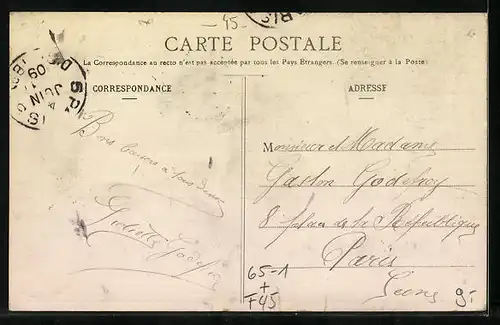 -45-
CARTE POSTALE
La Correspondance au recto n'est pas acceptée par tous les Pays Étrangers. (Se renseigner à la Poste)
CORRESPONDANCE
ADRESSE
JUIN
09
Bons baisers à tous deux
Monsieur et Madame
Gaston Godefroy
8 place de la République
Paris
65-1
+
F45
9.-